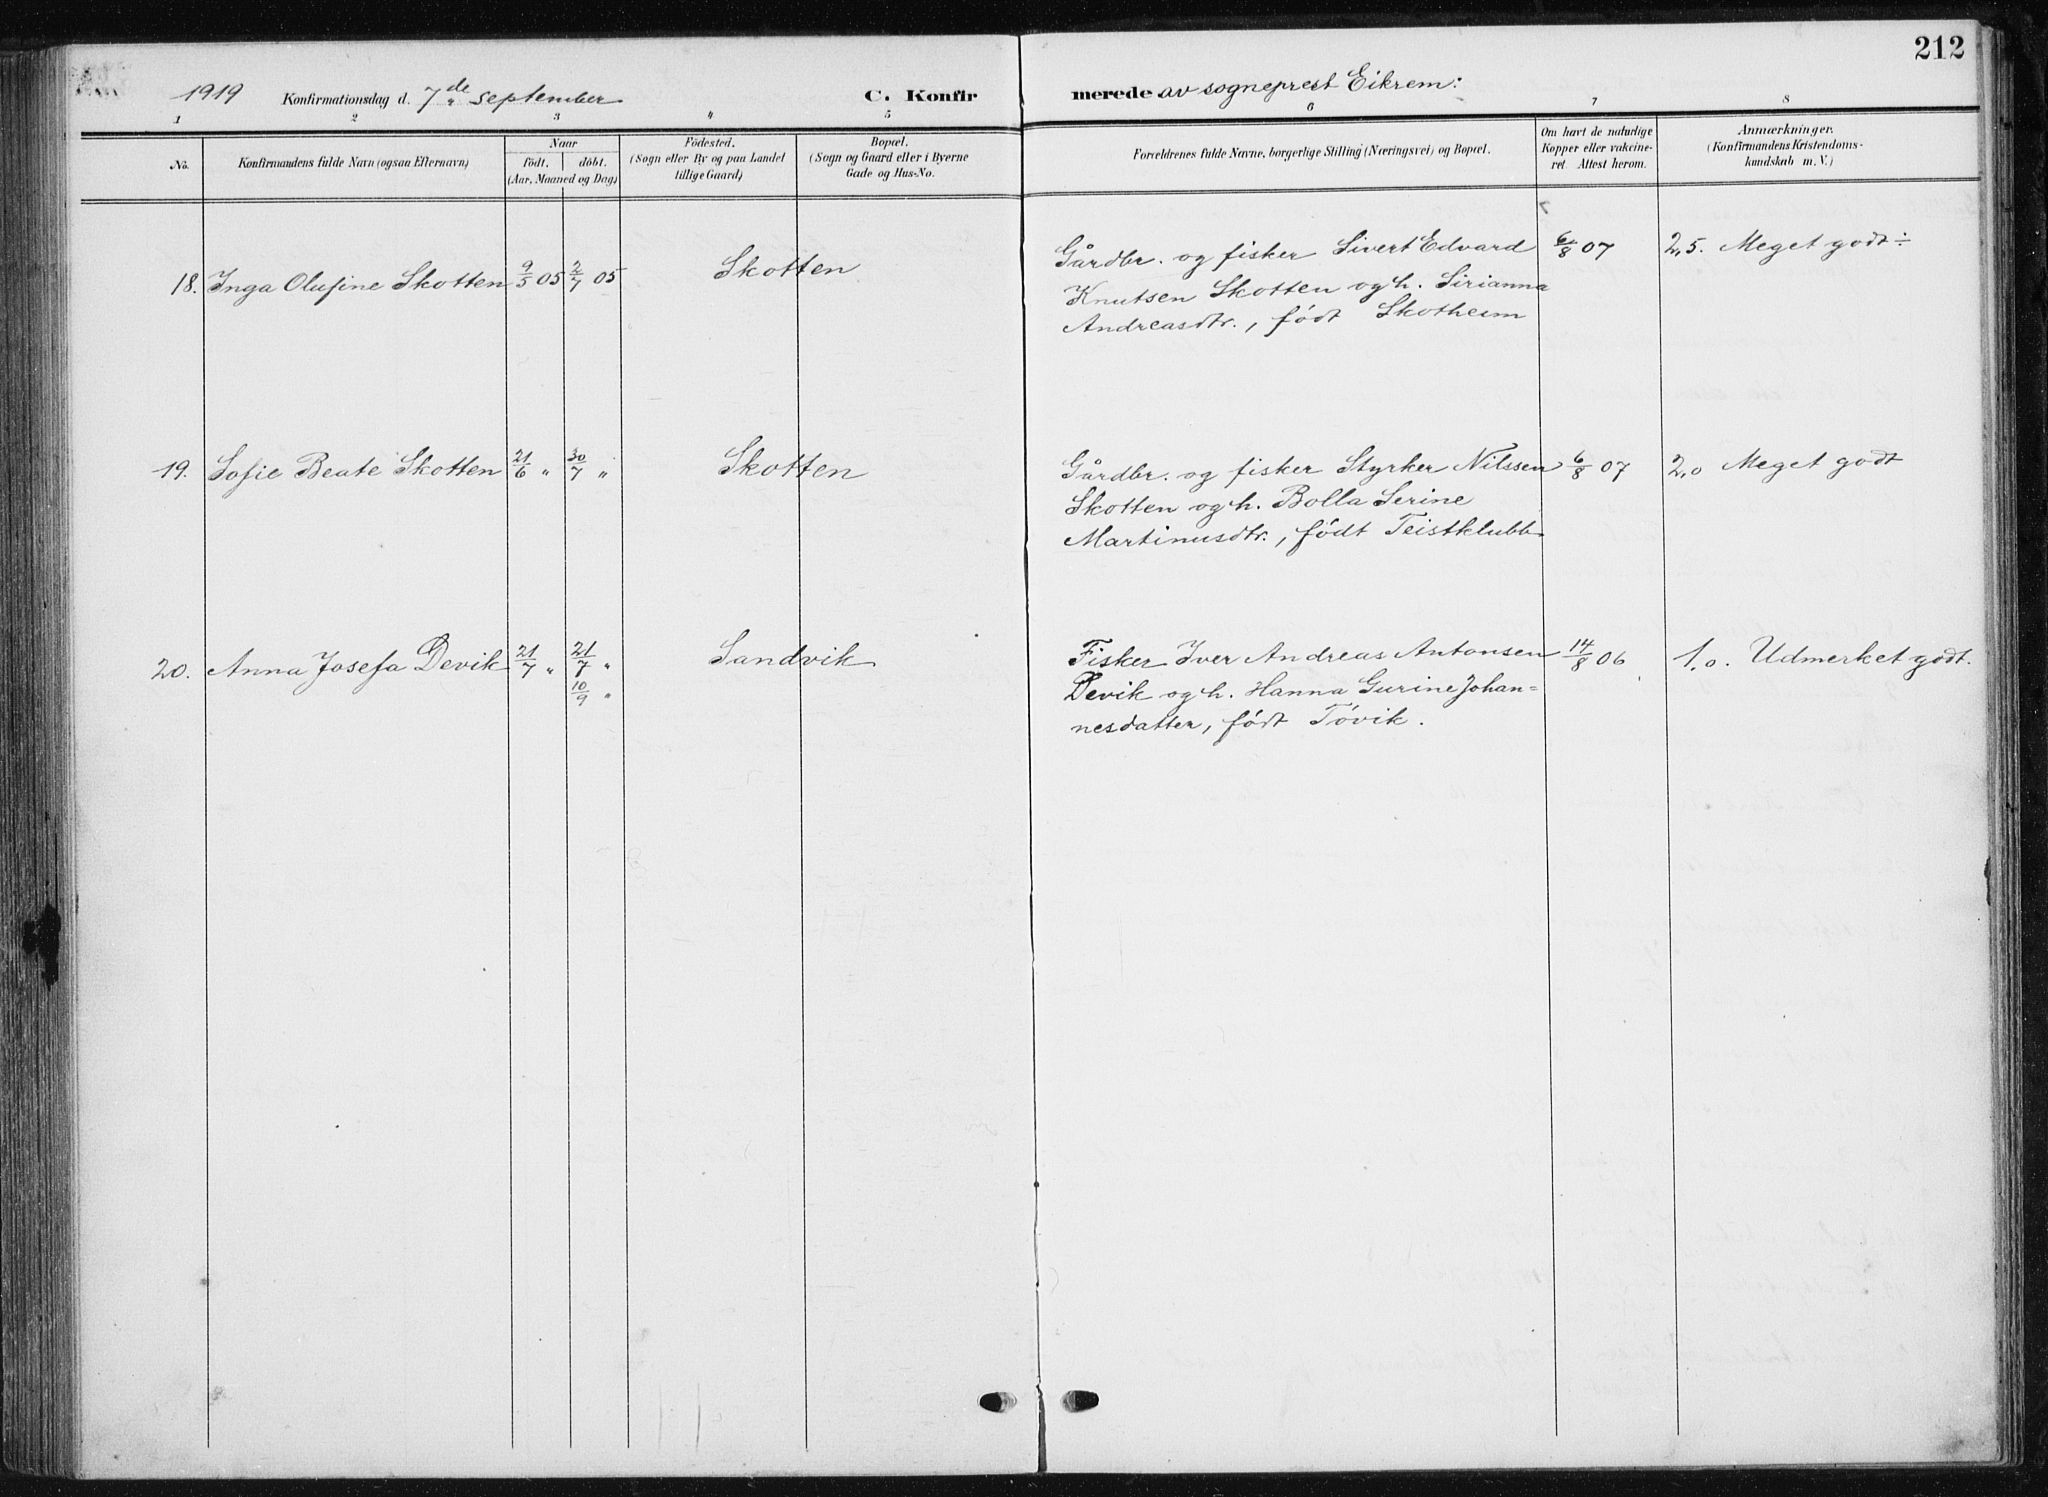 212
1919 Konfirmationsdag d. 7de september C. Konfirmerede av sogneprest Eikrem:
1 2 3 4 5 6 7 8
No.
Konfirmandens fulde Navn (ogsaa Efternavn)
Naar
født. døbt.
(Aar, Maaned og Dag)
Fødested.
(Sogn eller By og paa Landet
tillige Gaard)
Bopæl.
(Sogn og Gaard eller i Byerne
Gade og Hus-No.
Forældrenes fulde Navne, borgerlige Stilling (Næringsvei) og Bopæl.
Om havt de naturlige
Kopper eller vakcine-
ret. Attest herom.
Anmærkninger.
(Konfirmandens Kristendoms-
kundskab m. V.)
18. Inga Olufine Skotten 9/5 05 2/7 05 Skotten Gårdbr. og fisker Sivert Edvard 6/8 07 2,5. Meget godt ÷
Knutsen Skotten og h. Sirianna
Andreasdtr., født Skotheim
19. Sofie Beate Skotten 21/6 " 30/7 " Skotten Gårdbr. og fisker Styrker Nilssen 6/8 07 2,0 Meget godt
Skotten og h. Bolla Serine
Martinusdtr., født Teistklubb
20. Anna Josefa Devik 21/7 " 21/7 " Sandvik Fisker Iver Andreas Antonsen 14/8 06 1,0. Udmerket godt.
10/9 " Devik og h. Hanna Gurine Johan=
nesdatter, født Tövik.